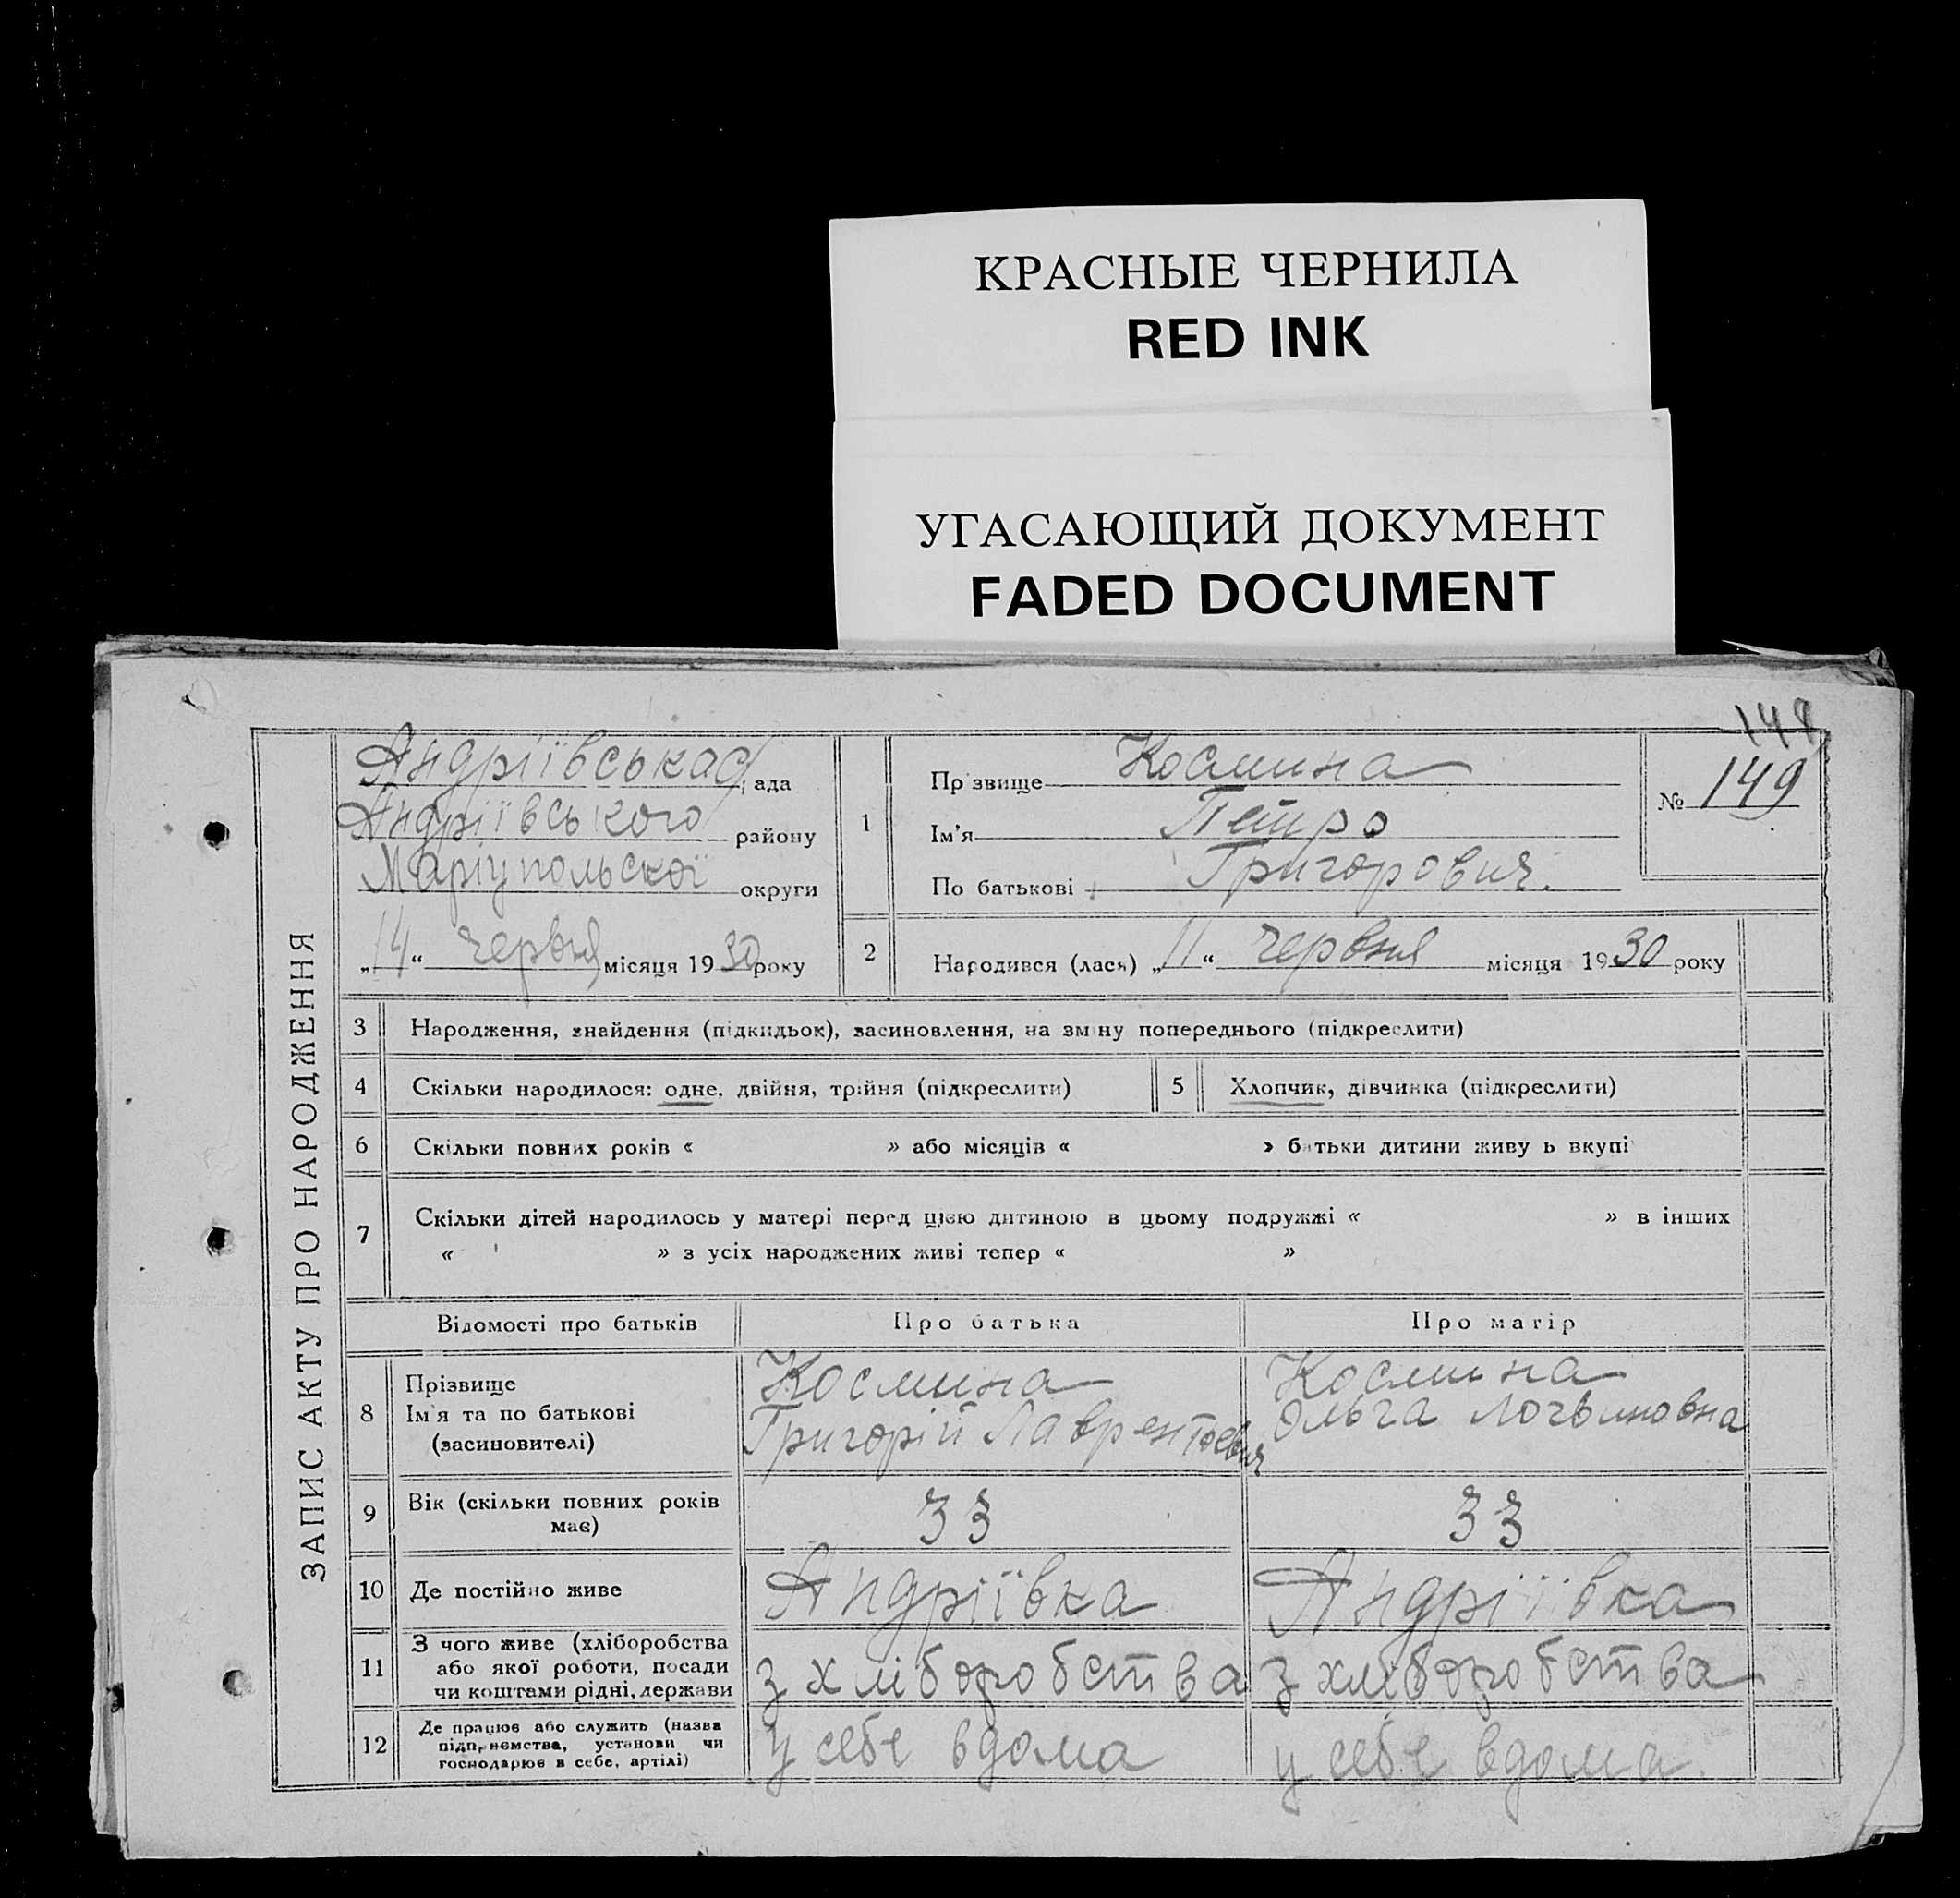 КРАСНЫЕ ЧЕРНИЛА
RED INK
УГАСАЮЩИЙ ДОКУМЕНТ
FADED DOCUMENT
148
ЗАПИС АКТУ ПРО НАРОДЖЕННЯ
Андріївська с/рада
Андріївського району
Маріупольскої округи
„14“ червня місяця 1930 року
1
Прізвище Космина
Ім'я Петро
По батькові Григорович.
№ 149
2 Народився (лася) „11“ червня місяця 1930 року
3 Народження, знайдення (підкидьок), засиновлення, на зміну попереднього (підкреслити)
4 Скільки народилося: одне, двійня, трійня (підкреслити)
5 Хлопчик, дівчинка (підкреслити)
6 Скільки повних років « » або місяців « » батьки дитини живуть вкупі
7 Скільки дітей народилось у матері перед цією дитиною в цьому подружжі « » в інших
« » з усіх народжених живі тепер « »
Відомості про батьків Про батька Про матір
8 Прізвище Космина Космина
Ім'я та по батькові Григорій Лаврентьевич Ольга Логвиновна
(засиновителі)
9 Вік (скільки повних років 33 33
має)
10 Де постійно живе Андріївка Андріївка
11 З чого живе (хліборобства
або якої роботи, посади з хліборобства з хліборобства
чи коштами рідні, держави
12 Де працює або служить (назва
підприємства, установи чи у себе вдома у себе вдома.
господарює в себе, артілі)